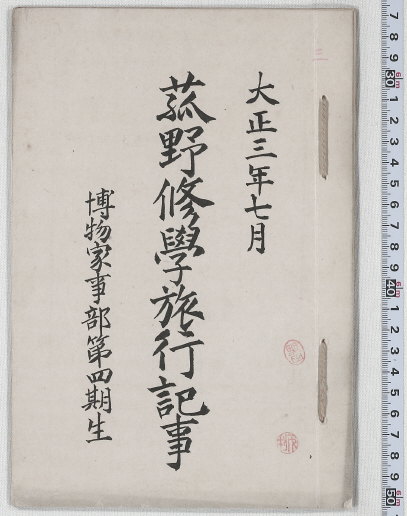 大正三年七月
菰野修學旅行記事
博物家事部第四期生
三
7 8 9 30 1 2 3 4 5 6 7 8 9 40 1 2 3 4 5 6 7 8 9 50